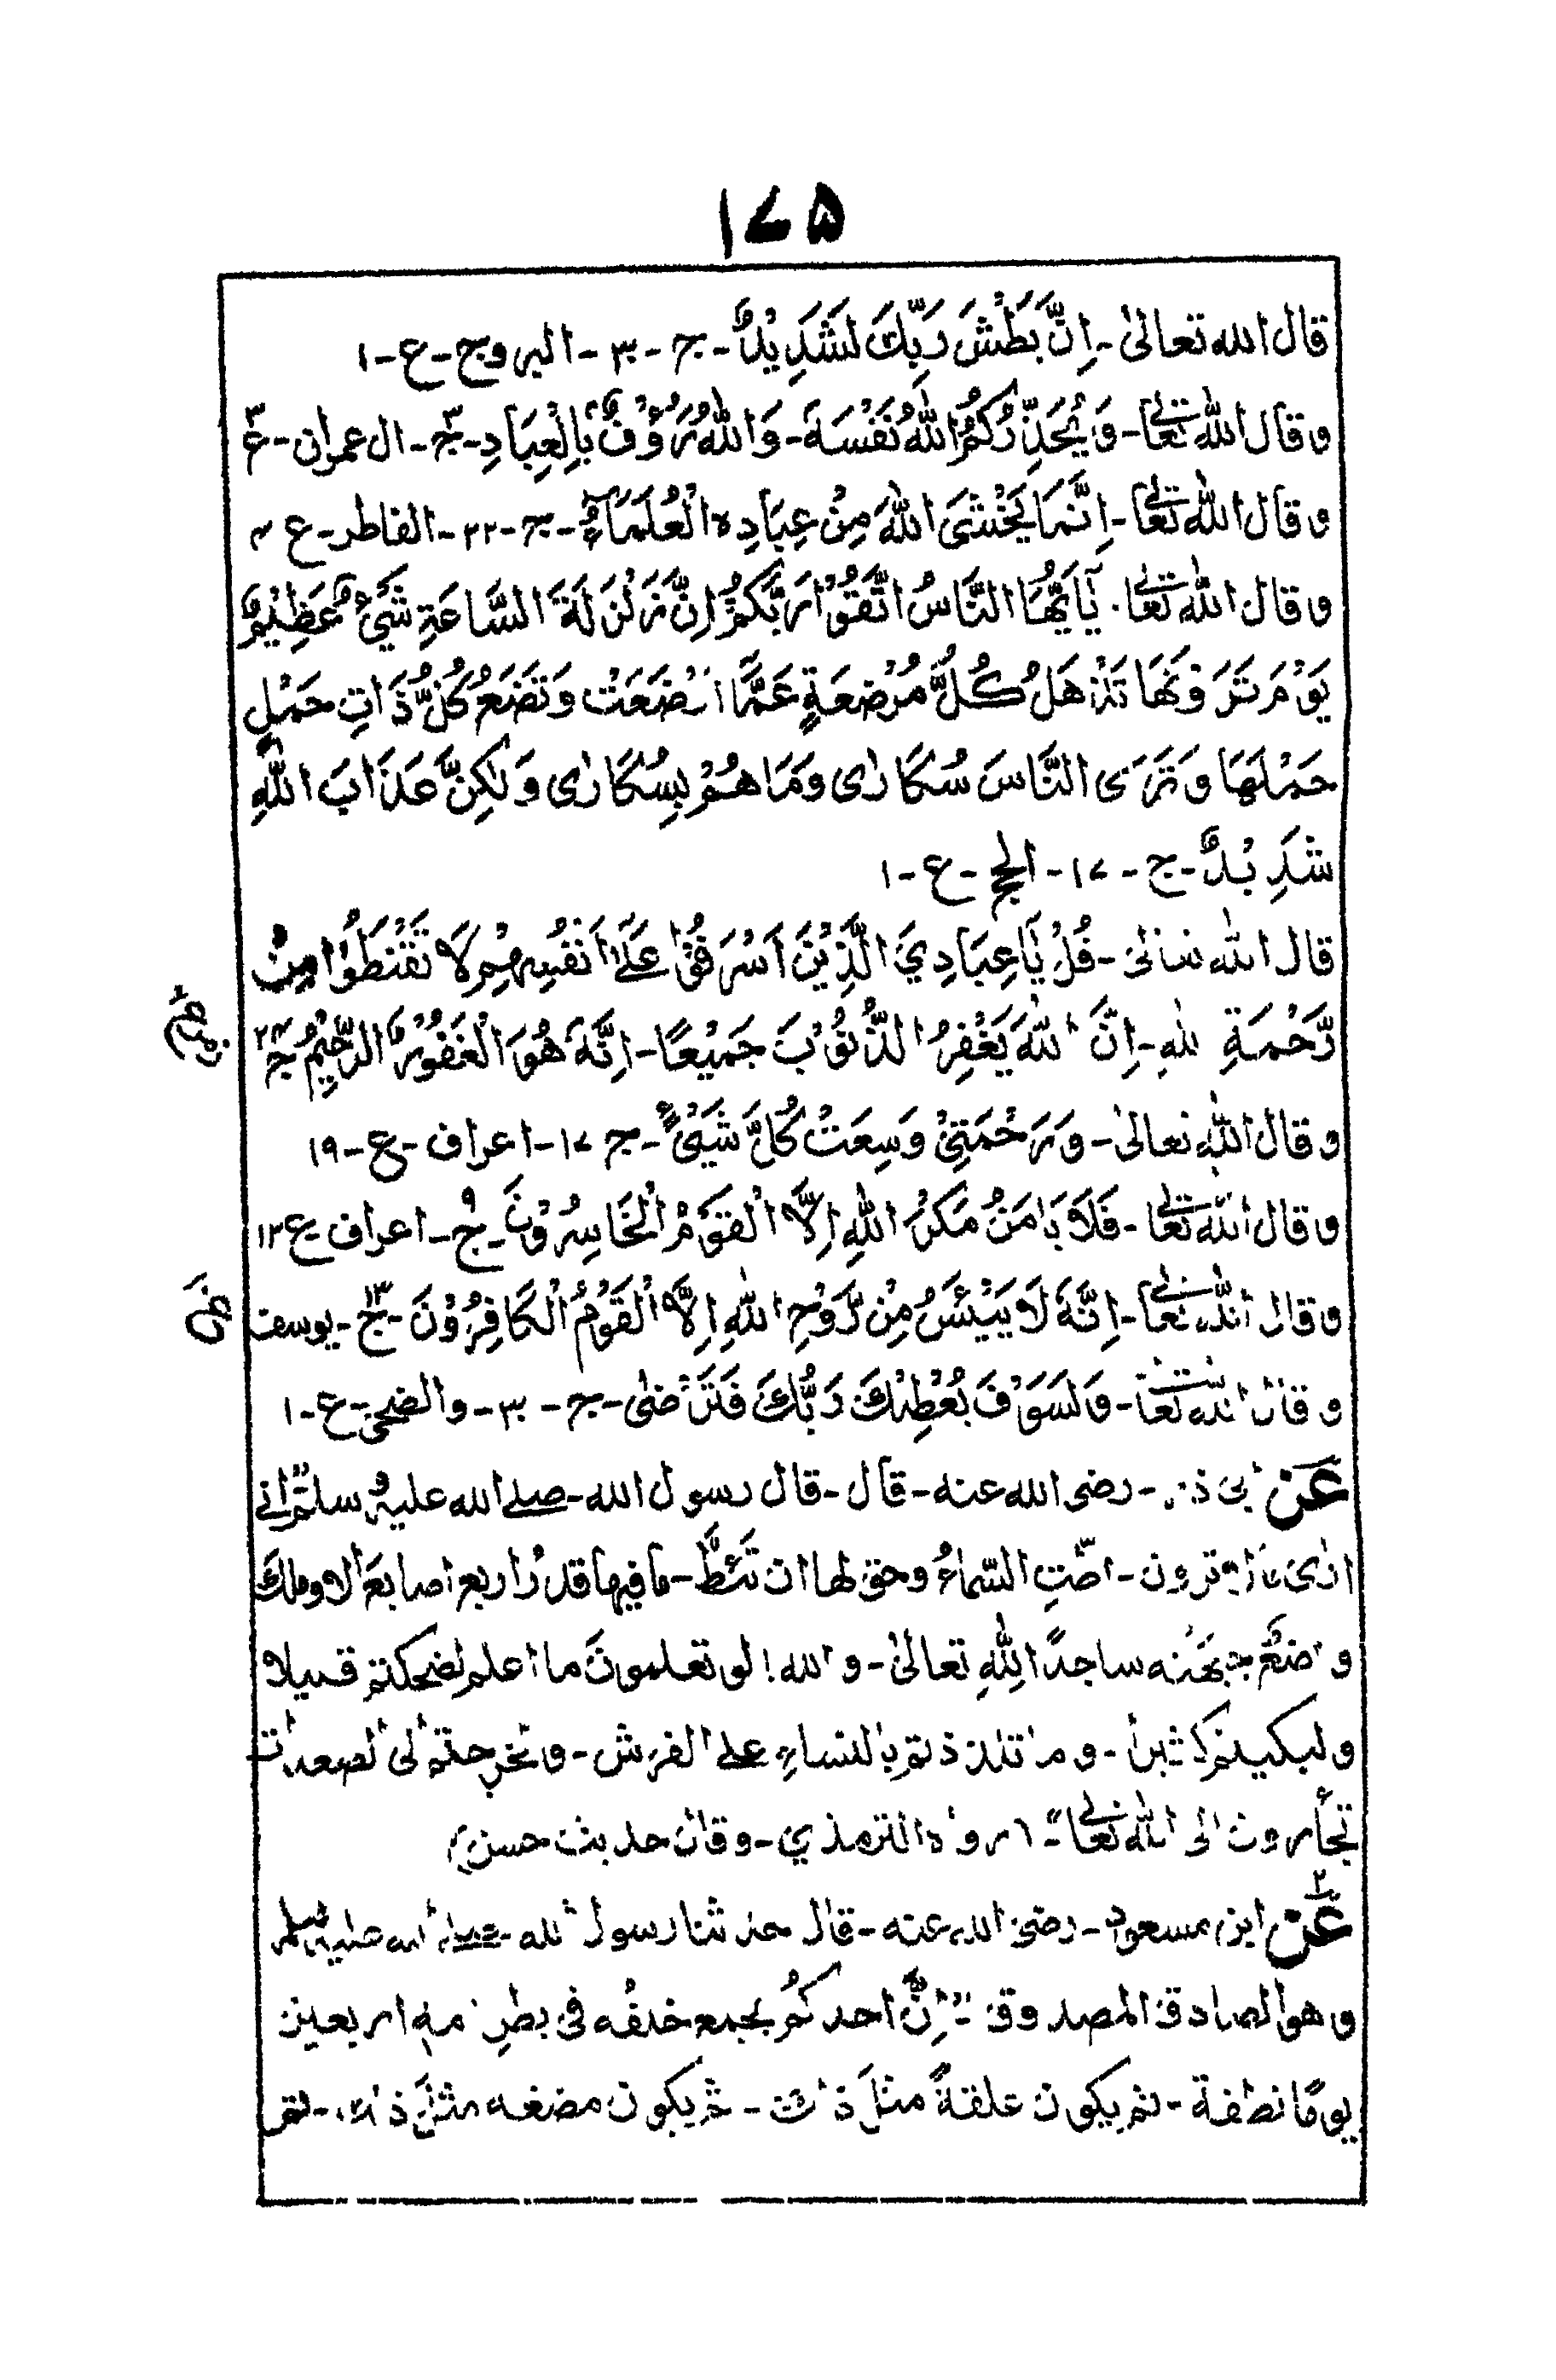 ۱۷۵
قال الله تعالیٰ - اِنَّ بَطْشَ رَبِّكَ لَشَدِيْدٌ - ج - ۳۰ - البروج - ع - ۱
و قال الله تعالیٰ - وَ يُحَذِّرُكُمُ اللهُ نَفْسَهٗ - وَ اللهُ رَؤُوْفٌ بِالْعِبَادِ - ج۳ - ال عمران - ع۳
و قال الله تعالیٰ - اِنَّمَا يَخْشَى اللهَ مِنْ عِبَادِهِ الْعُلَمَاءُ - ج - ۲۲ - الفاطر - ع ۴
و قال الله تعالیٰ . يَآ اَيُّهَا النَّاسُ اتَّقُوْا رَبَّكُمْ اِنَّ زَلْزَلَةَ السَّاعَةِ شَيْءٌ عَظِيْمٌ
يَوْمَ تَرَوْنَهَا تَذْهَلُ كُلُّ مُرْضِعَةٍ عَمَّا اَرْضَعَتْ وَتَضَعُ كُلُّ ذَاتِ حَمْلٍ
حَمْلَهَا وَ تَرَى النَّاسَ سُكَارٰى وَمَا هُمْ بِسُكَارٰى وَ لٰكِنَّ عَذَابَ اللهِ
شَدِيْدٌ - ج - ۱۷ - الحج - ع - ۱
قال الله تعالیٰ - قُلْ يَا عِبَادِيَ الَّذِيْنَ اَسْرَفُوْا عَلٰى اَنْفُسِهِمْ لَا تَقْنَطُوْا مِنْ
رَّحْمَةِ اللهِ - اِنَّ اللهَ يَغْفِرُ الذُّنُوْبَ جَمِيْعًا - اِنَّهٗ هُوَ الْغَفُوْرُ الرَّحِيْمُ ج۲۴
زمر ع
و قال الله تعالیٰ - وَ رَحْمَتِيْ وَسِعَتْ كُلَّ شَيْئٍ - ج ۱۷ - اعراف - ع - ۱۹
و قال الله تعالیٰ - فَلَا يَامَنُ مَكْرَ اللهِ اِلَّا الْقَوْمُ الْخَاسِرُوْنَ - ج۹ - اعراف - ع ۱۲
و قال الله تعالیٰ - اِنَّهٗ لَا يَيْئَسُ مِنْ رَّوْحِ اللهِ اِلَّا الْقَوْمُ الْكَافِرُوْنَ - ج۱۳ - يوسف
و قال الله تعالیٰ - وَلَسَوْفَ يُعْطِيْكَ رَبُّكَ فَتَرْضٰى - ج - ۳۰ - والضحى - ع - ۱
عَن ابی ذر - رضی الله عنه - قال - قال رسول الله - صلے الله عليه و سلم "انی
ارٰى ما لا ترون - اطّتِ السّماءُ وحق لها ان تَئطَّ - ما فيها قدرُ اربع اصابعَ الا وملك
و اضعٌ جبهته ساجدًا لِلّٰهِ تعالیٰ - و الله! لو تعلمونَ ما اعلم لضحكتم قليلا
و لبكيتم كثيراً - و ما تلذذتم بالنساءِ علے الفرش - و لخرجتم الى الصعدات
تجأرون الى الله تعالیٰ" - (رواه الترمذي - وقال حديث حسن)
عَن ۲ ابن مسعود - رضی الله عنه - قال حدثنا رسول الله - صلے الله عليه وسلم
و هو الصادق المصدوق - "اِنَّ احدكُم يجمع خلقُه فی بطنِ امه اربعين
يومًا نطفة - ثم يكون علقةً مثلَ ذلك - ثم يكون مضغه مثلَ ذلك - ثم